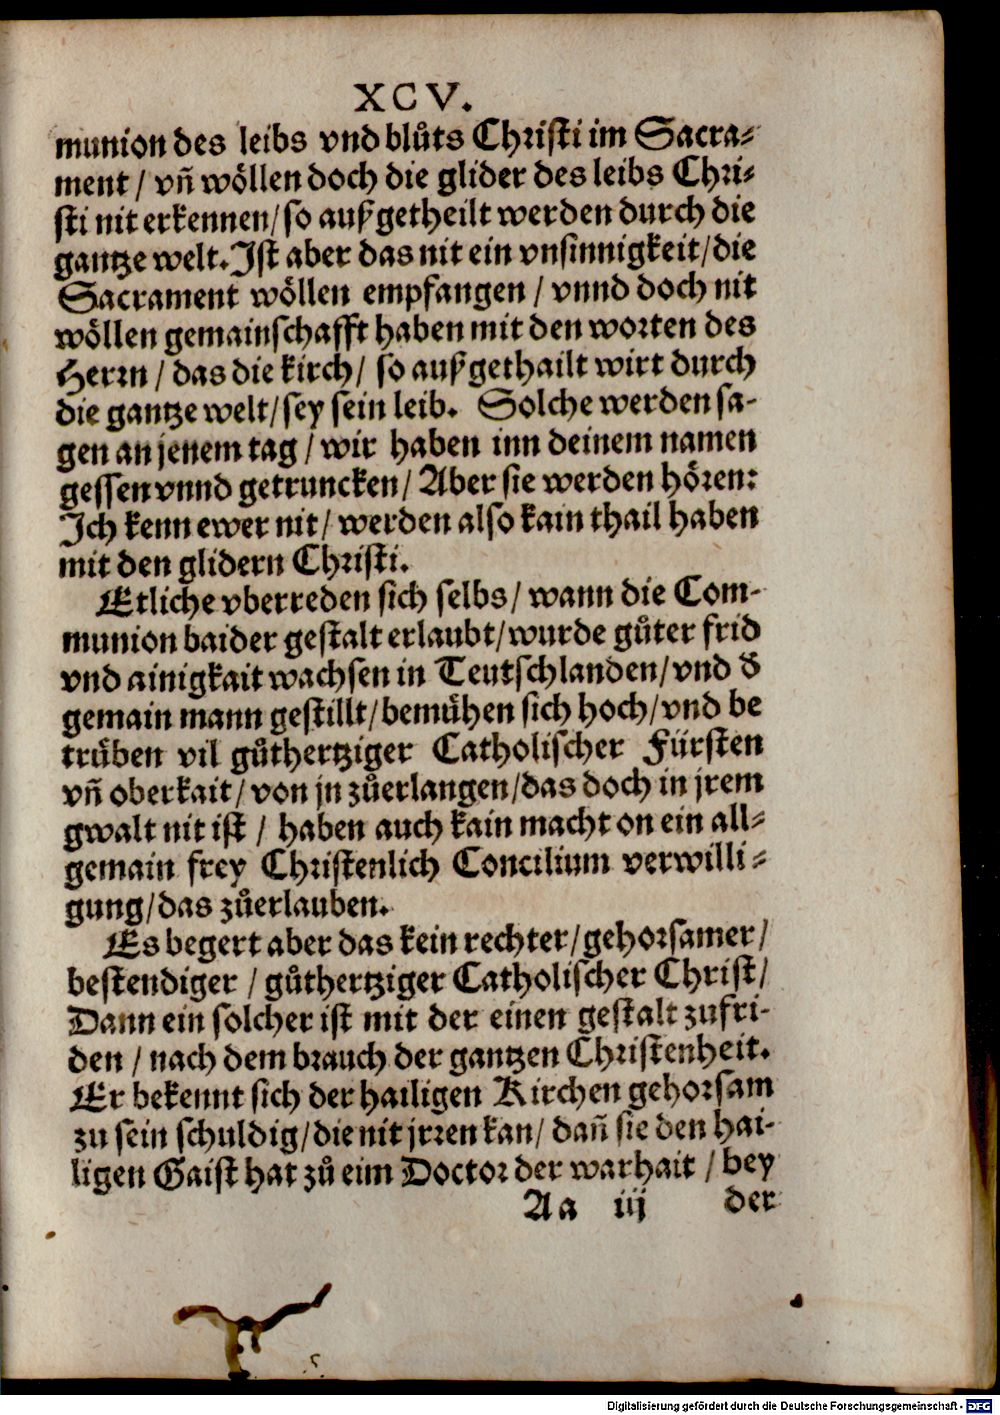 XCV.
munion des leibs vnd blůts Christi im Sacra-
ment / vñ wöllen doch die glider des leibs Chri-
sti nit erkennen/ so außgetheilt werden durch die
gantze welt. Ist aber das nit ein vnsinnigkeit/ die
Sacrament wöllen empfangen / vnnd doch nit
wöllen gemainschafft haben mit den worten des
Herrn / das die kirch/ so außgethailt wirt durch
die gantze welt/ sey sein leib. Solche werden sa-
gen an jenem tag / wir haben inn deinem namen
gessen vnnd getruncken/ Aber sie werden hören:
Ich kenn ewer nit/ werden also kain thail haben
mit den glidern Christi.
Etliche vberreden sich selbs/ wann die Com-
munion baider gestalt erlaubt/ wurde gůter frid
vnd ainigkait wachsen in Teutschlanden/ vnd d̕
gemain mann gestillt/ bemühen sich hoch/ vnd be
trüben vil gůthertziger Catholischer Fürsten
vñ oberkait/ von jn zůerlangen/ das doch in jrem
gwalt nit ist / haben auch kain macht on ein all-
gemain frey Christenlich Concilium verwilli-
gung/ das zůerlauben.
Es begert aber das kein rechter/ gehorsamer/
bestendiger / gůthertziger Catholischer Christ/
Dann ein solcher ist mit der einen gestalt zufri-
den / nach dem brauch der gantzen Christenheit.
Er bekennt sich der hailigen Kirchen gehorsam
zu sein schuldig/ die nit jrren kan/ dañ sie den hai-
ligen Gaist hat zů eim Doctor der warhait / bey
Aa iij der
Digitalisierung gefördert durch die Deutsche Forschungsgemeinschaft - DFG